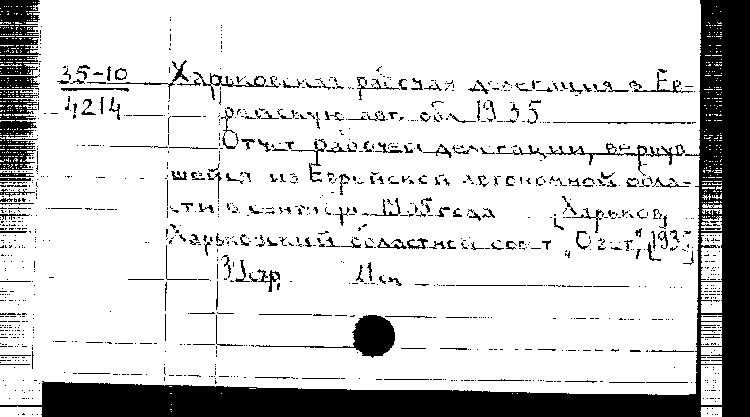 35-10
4214
Харьковская рабочая делегация в Ев-
рейскую авт. обл. 1935
Отчет рабочей делегации, вернув
шейся из Еврейской автономной обла-
сти в сентябре 1935 года [Харьков,
Харьковский областной совет „Озет“, 1935]
31 стр. 21 см